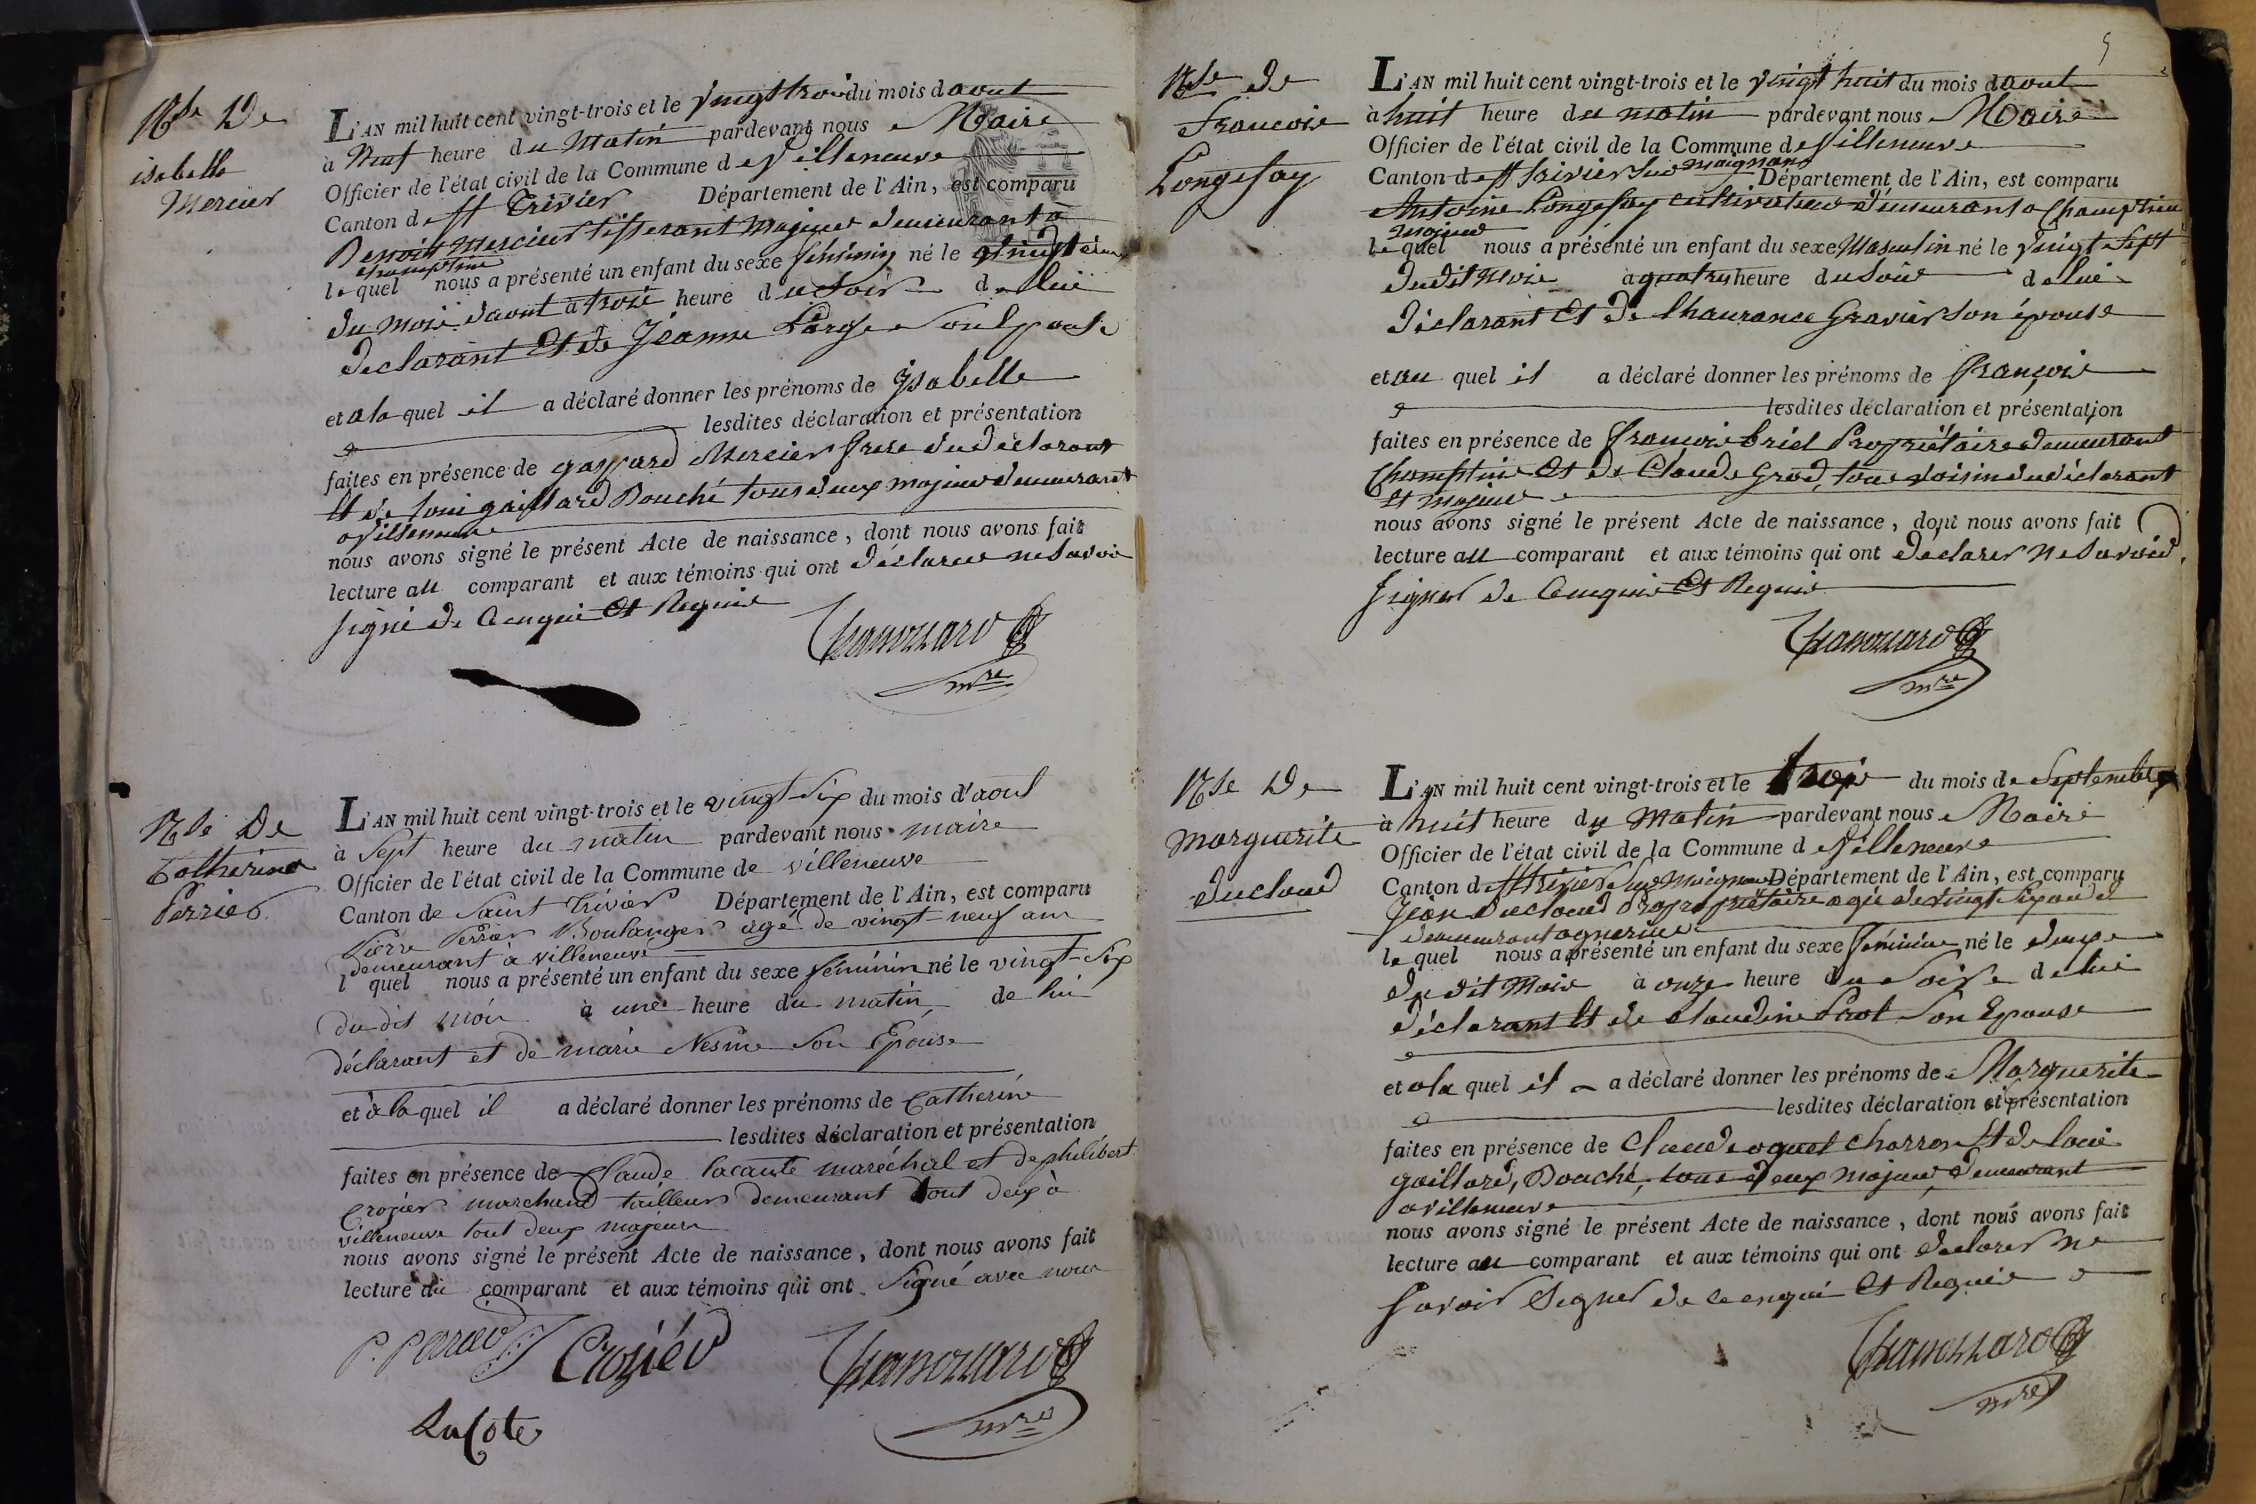 Nce De
isabelle
Mercier
L'AN mil huit cent vingt-trois et le vingt trois du mois daout
à Neuf heure du Matin pardevant nous Maire
Officier de l'état civil de la Commune de Villeneuve
Canton de St Trivier Département de l'Ain, est comparu
Benoit Mercier tisserant Majeur demeurant à
Champtin
lequel nous a présenté un enfant du sexe né le
du mois daout a trois heure du Soir de lui
declarant Et de Jeanne Large Son Epouse
et a la quel il a déclaré donner les prénoms de Isabelle
lesdites déclaration et présentation
faites en présence de gaspard Mercier frere du declarant
Et de loui gaillard Bouché tous deux majeur demeurant
a villeneuve
nous avons signé le présent Acte de naissance, dont nous avons fait
lecture au comparant et aux témoins qui ont déclarer ne Savoir
signé de Cenqui Et Requis
mre
Nce De
Catherine
Perrier
L'AN mil huit cent vingt-trois et le vingt-six du mois d'aout
à Sept heure du matin pardevant nous maire
Officier de l'état civil de la Commune de villeneuve
Canton de Saint Trivier Département de l'Ain, est comparu
Pierre Perrier Boulanger agé de vingt-neuf ans
demeurant à villeneuve
l quel nous a présenté un enfant du sexe féminin né le vingt-Six
du dit mois à une heure du matin, de lui
déclarant et de marie Nesme Son Epouse
et à la quel il a déclaré donner les prénoms de Catherine
lesdites déclaration et présentation
faites en présence de Claude lacaute maréchal et de philibert
Crozier marchand tailleur demeurant tout deux à
villeneuve tout deux majeurs
nous avons signé le présent Acte de naissance, dont nous avons fait
lecture du comparant et aux témoins qui ont Signé avec nous
P. Perrier Croziér
LaCote
mre
5
Nce de
Francois
Longefay
L'AN mil huit cent vingt-trois et le vingt huit du mois daout
à huit heure du matin pardevant nous Maire
Officier de l'état civil de la Commune de Villeneuve
Canton de St Trivier Sur moignans Département de l'Ain, est comparu
Antoine Longefay cultivateur demeurant a Champtin
majeur
lequel nous a présenté un enfant du sexe Masculin né le vingt Sept
dudit Mois à quatre heure du Soir de lui
déclarant Et de Chaurance Gravier son épouse
et au quel il a déclaré donner les prénoms de françois
lesdites déclaration et présentation
faites en présence de francois briel Propriétaire demeurant
Champtin Et de Claude Grod, tous voisin du déclarant
Et majeur
nous avons signé le présent Acte de naissance, dont nous avons fait
lecture au comparant et aux témoins qui ont déclarer ne Savoir
signer de Cenquis Et Requis
mre
Nce De
Marguerite
ducloud
L'AN mil huit cent vingt-trois et le trois du mois de Septembre
à huit heure du Matin pardevant nous Maire
Officier de l'état civil de la Commune de Villeneuve
Canton de St Trivier Sur Moignans Département de l'Ain, est comparu
Jean Ducloud propriétaire agé de vingt Six ans
demeurant
lequel nous a présenté un enfant du sexe féminin né le deuxe
du dit Mois à onze heure du Soir de lui
déclarant Et de Claudine Prot Son Epouse
et a la quel il a déclaré donner les prénoms de Marguerite
lesdites déclaration et présentation
faites en présence de Claude oquet charron Et de loui
gaillard, Bouché, tous deux majeur, demeurant
a villeneuve
nous avons signé le présent Acte de naissance, dont nous avons fait
lecture au comparant et aux témoins qui ont declarer ne
savoir Signer de ce enqui Et Requis
mre